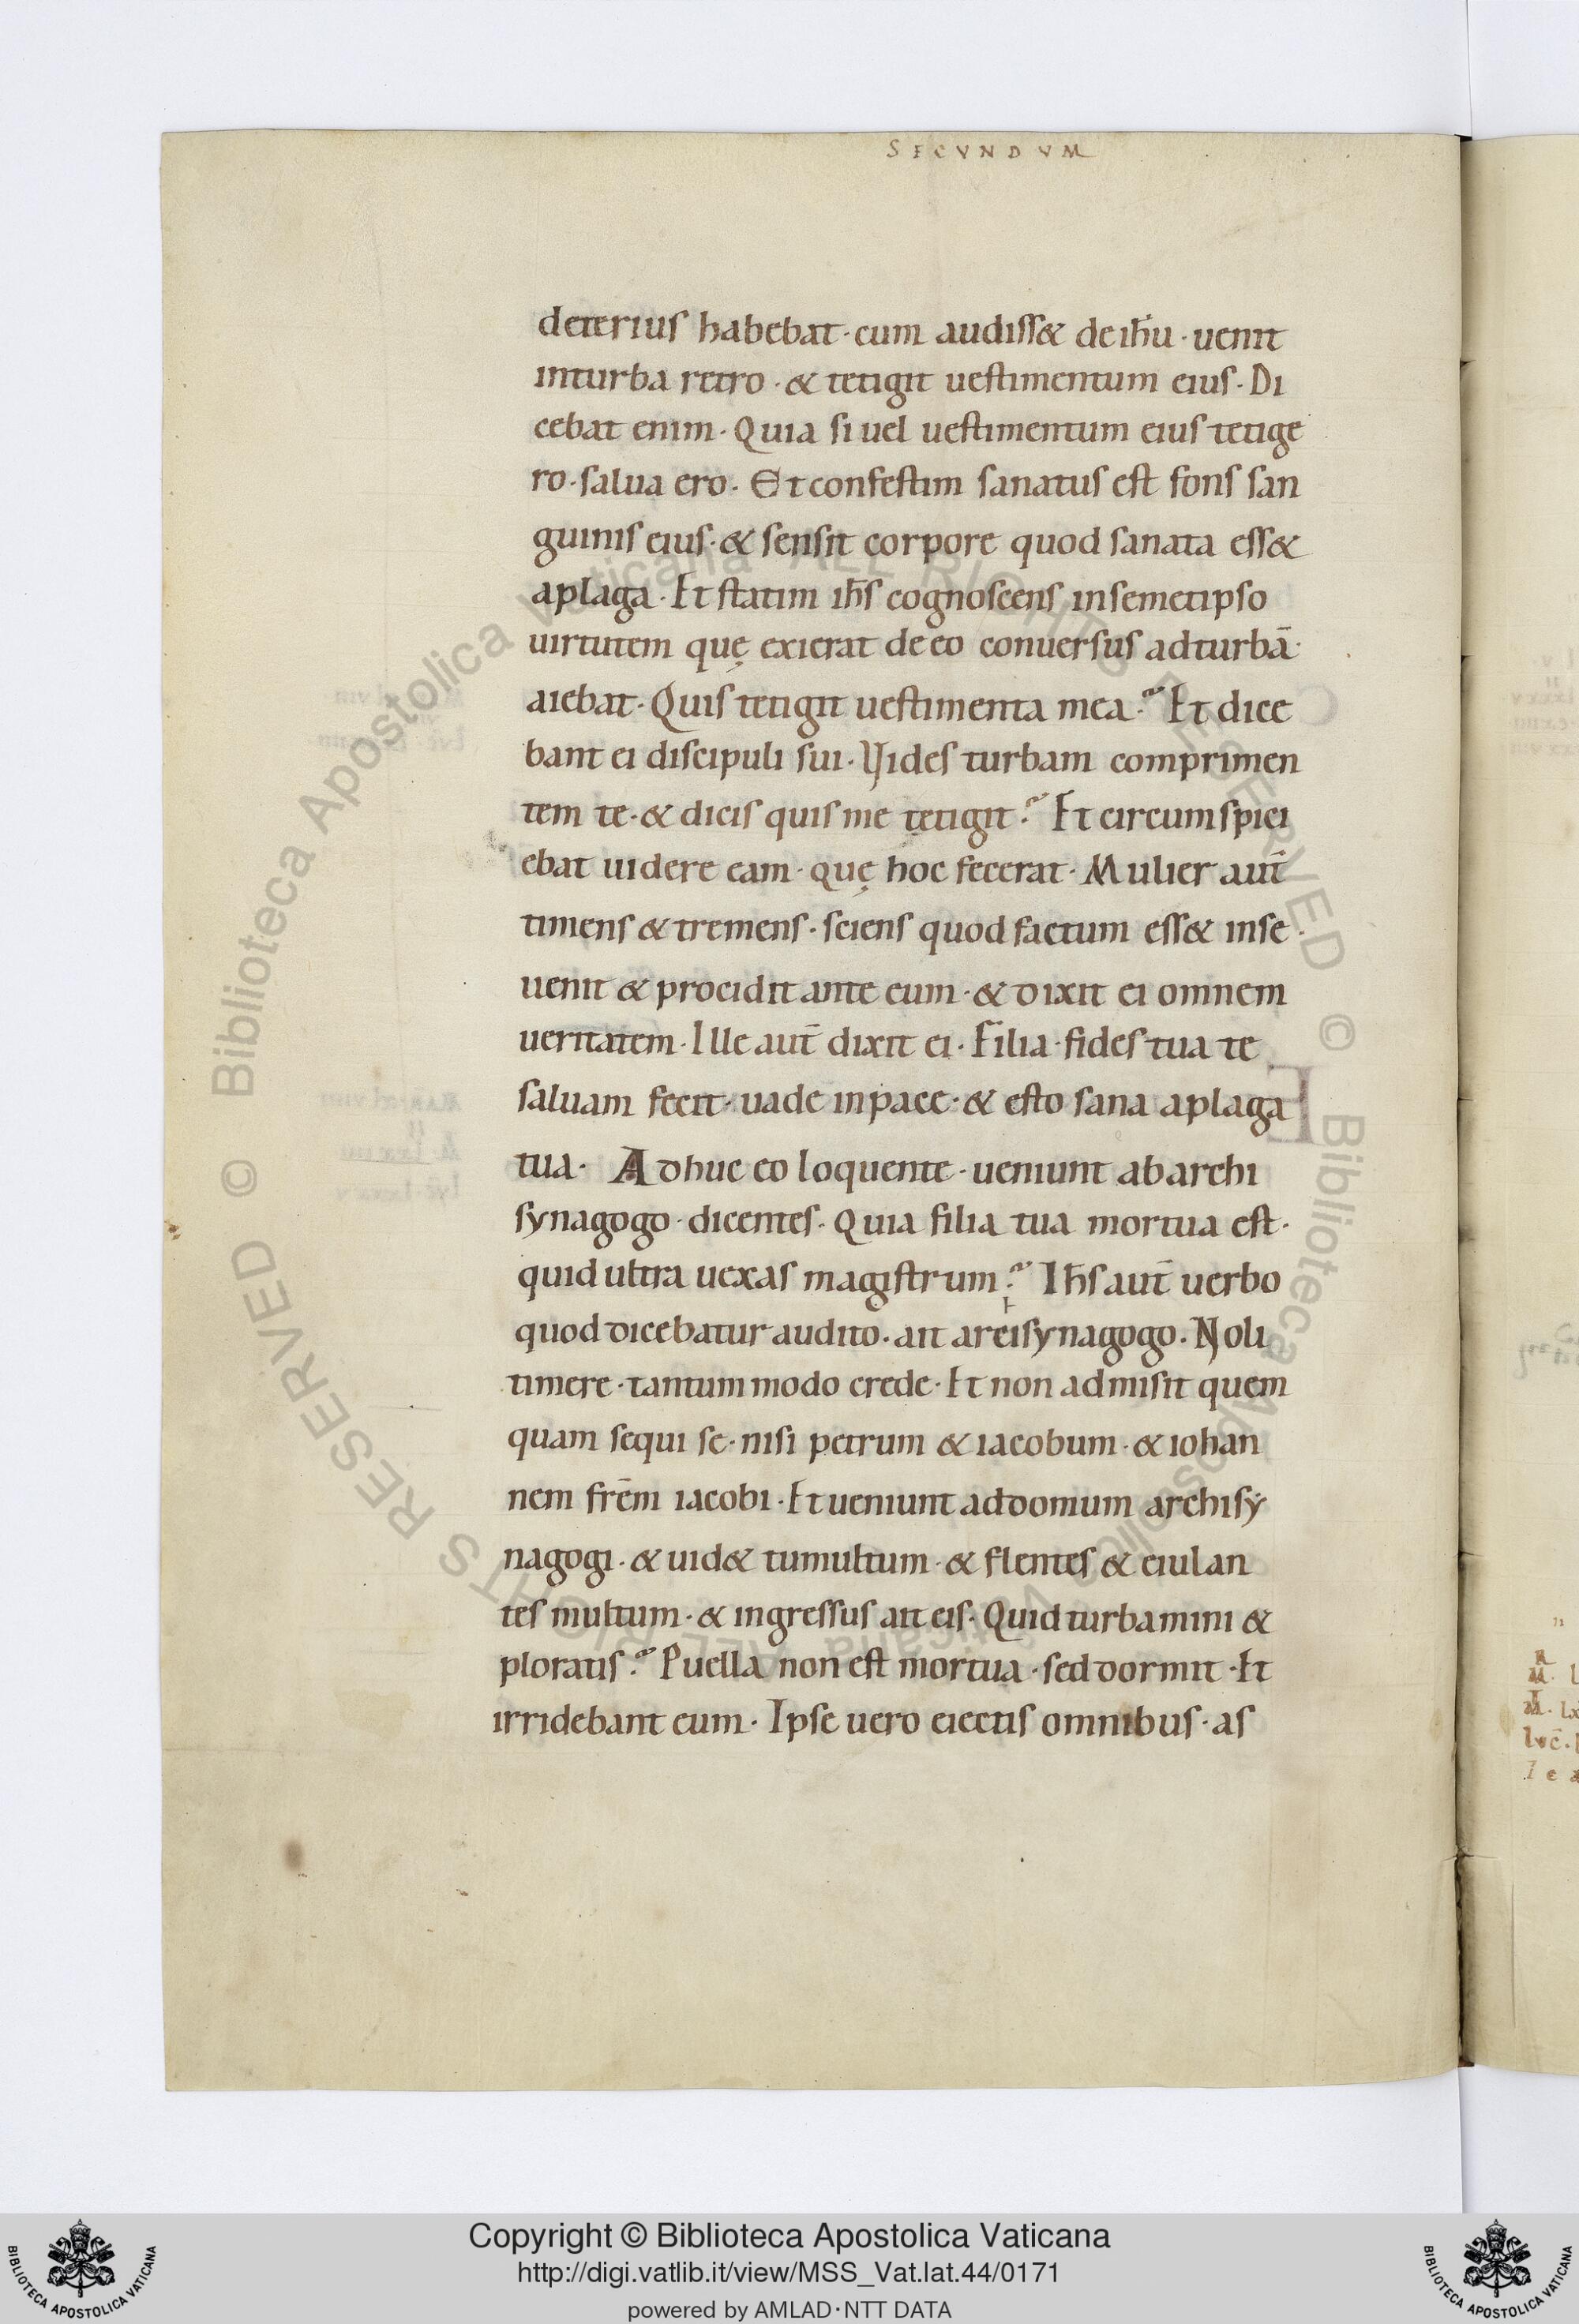 SECVNDVM
deterius habebat· cum audiss& de ih̄u· uenit
inturba retro· & tetigit uestimentum eius· Di
cebat enim· Quia si uel uestimentum eius tetige
ro· salua ero· Et confestim sanatus est fons san
guinis eius· & sensit corpore quod sanata ess&
aplaga· Et statim ih̄s cognoscens insemetipso
uirtutem quę exierat de eo conuersus adturbā·
aiebat· Quis tetigit uestimenta mea? Et dice
bant ei discipuli sui· Vides turbam comprimen
tem te· & dicis quis me tetigit? Et circumspici
ebat uidere eam· quę hoc fecerat· Mulier aut̄
timens & tremens· sciens quod factum ess& inse·
uenit & procidit ante eum· & dixit ei omnem
ueritatem· Ille aut̄ dixit ei· Filia· fides tua te
saluam fecit· uade inpace· & esto sana aplaga
tua· Adhuc eo loquente· ueniunt ab archi
synagogo· dicentes· Quia filia tua mortua est·
quid ultra uexas magistrum? Ih̄s aut̄ uerbo
quod dicebatur audito· ait arcisynagogo· Noli
timere· tantummodo crede· Et non admisit quem
quam sequi se· nisi petrum & iacobum· & iohan
nem frēm iacobi· Et ueniunt addomum archisẏ
nagogi· & uid& tumultum· & flentes & eiulan
tes multum· & ingressus ait eis· Quid turbamini &
ploratis? Puella non est mortua· sed dormit· Et
irridebant eum· Ipse uero eiectis omnibus· as
© Biblioteca Apostolica Vaticana ALL RIGHTS RESERVED
© Biblioteca Apostolica Vaticana ALL RIGHTS RESERVED
Copyright © Biblioteca Apostolica Vaticana
http://digi.vatlib.it/view/MSS_Vat.lat.44/0171
powered by AMLAD·NTT DATA
BIBLIOTECA APOSTOLICA VATICANA
BIBLIOTECA APOSTOLICA VATICANA